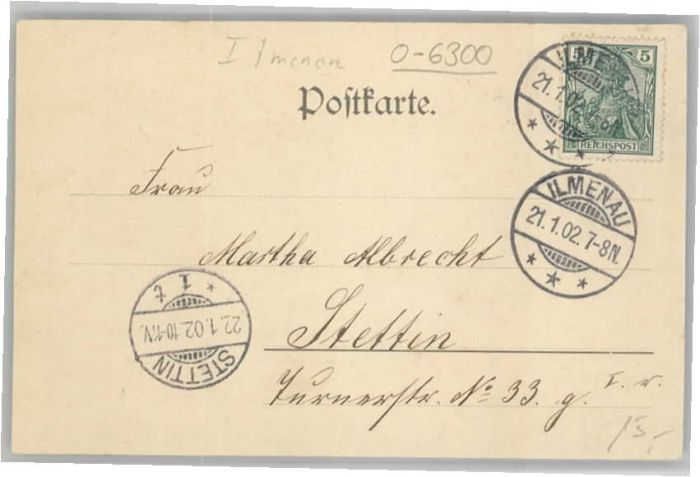 I Ilmenau
O-6300
Postkarte.
5 5
REICHSPOST
ILMENAU
21.1.02.7-8N.
ILMENAU
21.1.02.7-8N.
Frau
Martha Albrecht
Stettin
Turnerstr. No 33. g. I. r.
STETTIN
22.1.02.10-11V.
1 t
15,-